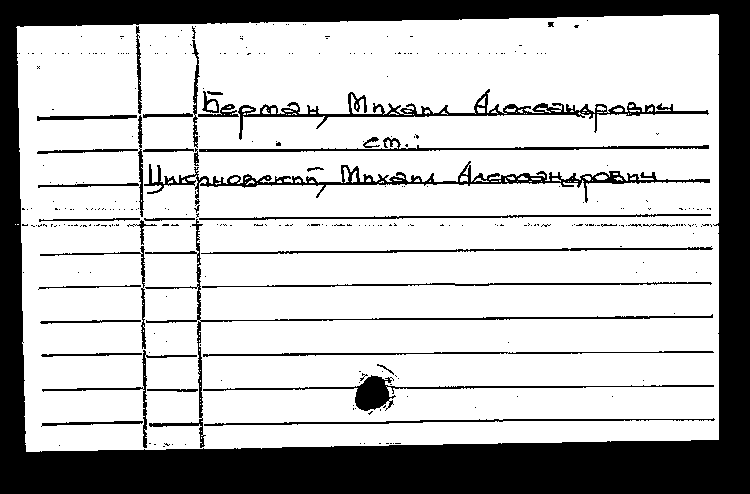 Берман, Михаил Александрович
см.:
Цикановский, Михаил Александрович